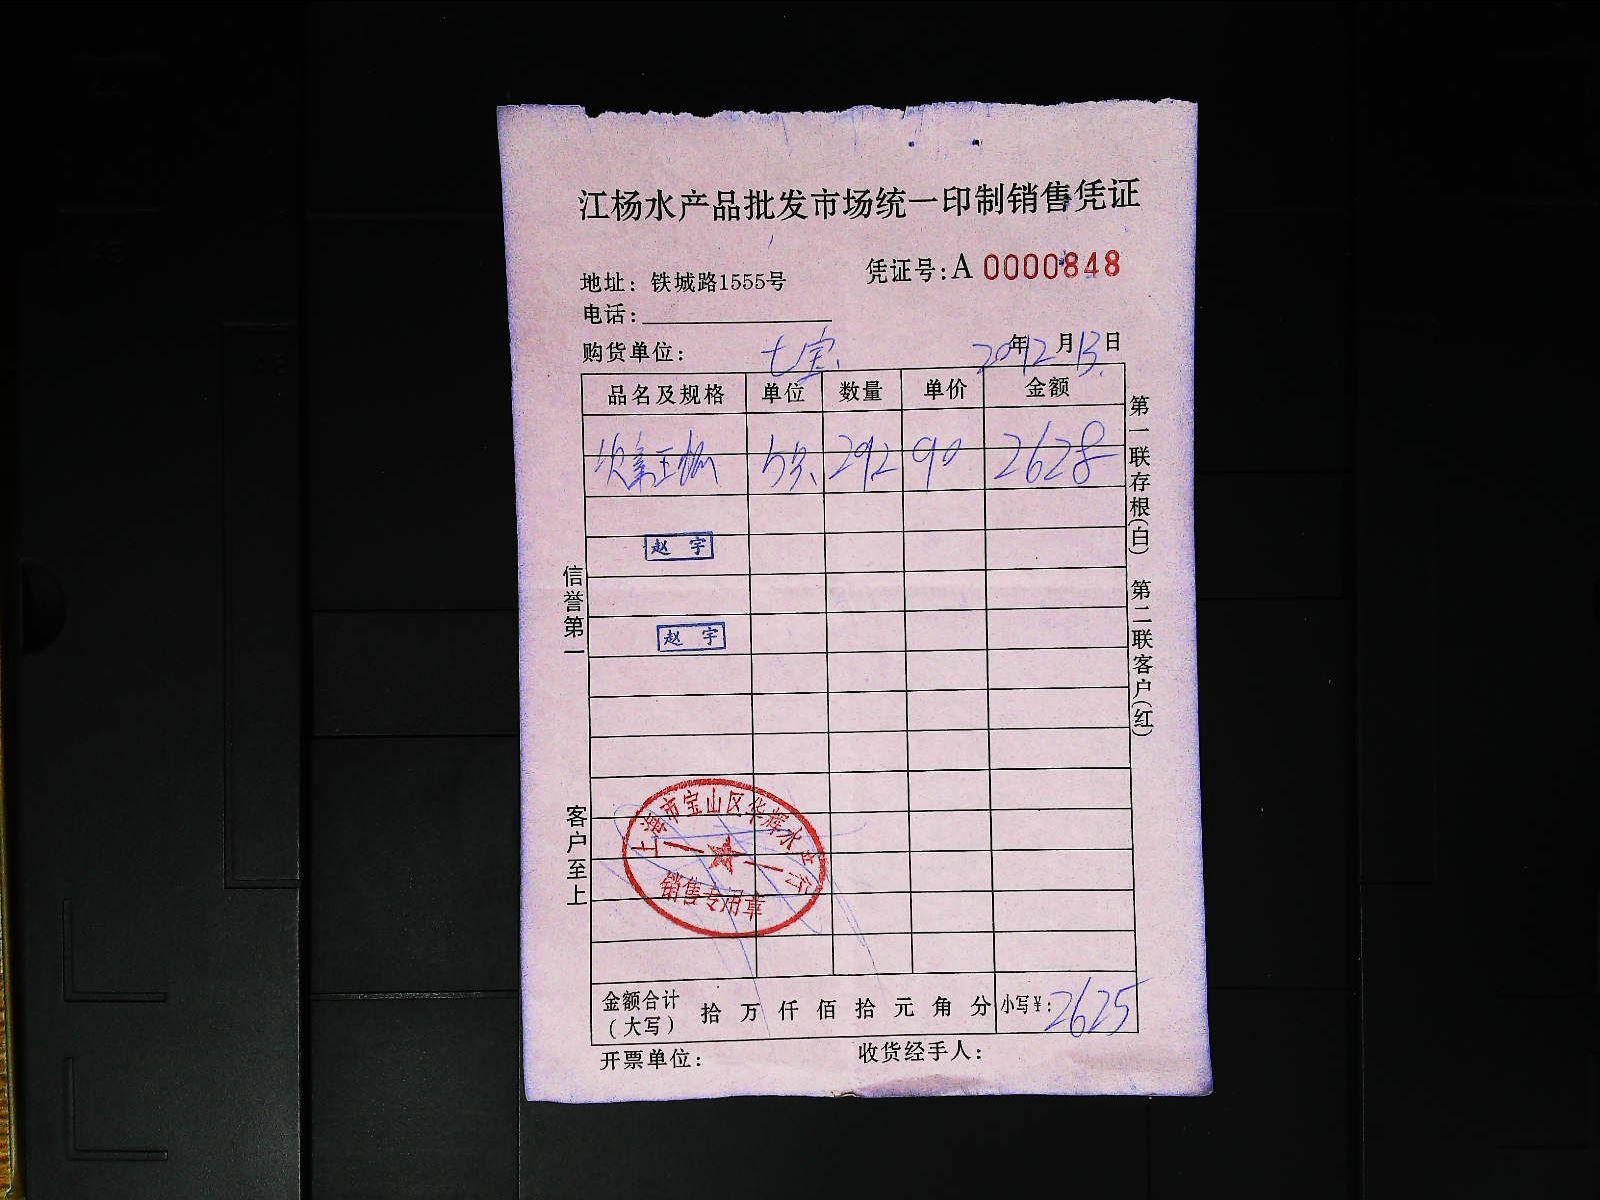 江杨水产品批发市场统一印制销售凭证
地址：铁城路1555号
凭证号：A 0000848
电话：
购货单位：七宝
年12月13日
品名及规格 单位 数量 单价 金额
292 90 2628
赵 宇
赵 宇
上海市宝山区华辉水产行
销售专用章
金额合计（大写） 拾 万 仟 佰 拾 元 角 分 小写¥：2625
开票单位： 收货经手人：
信誉第一
客户至上
第一联存根(白)
第二联客户(红)